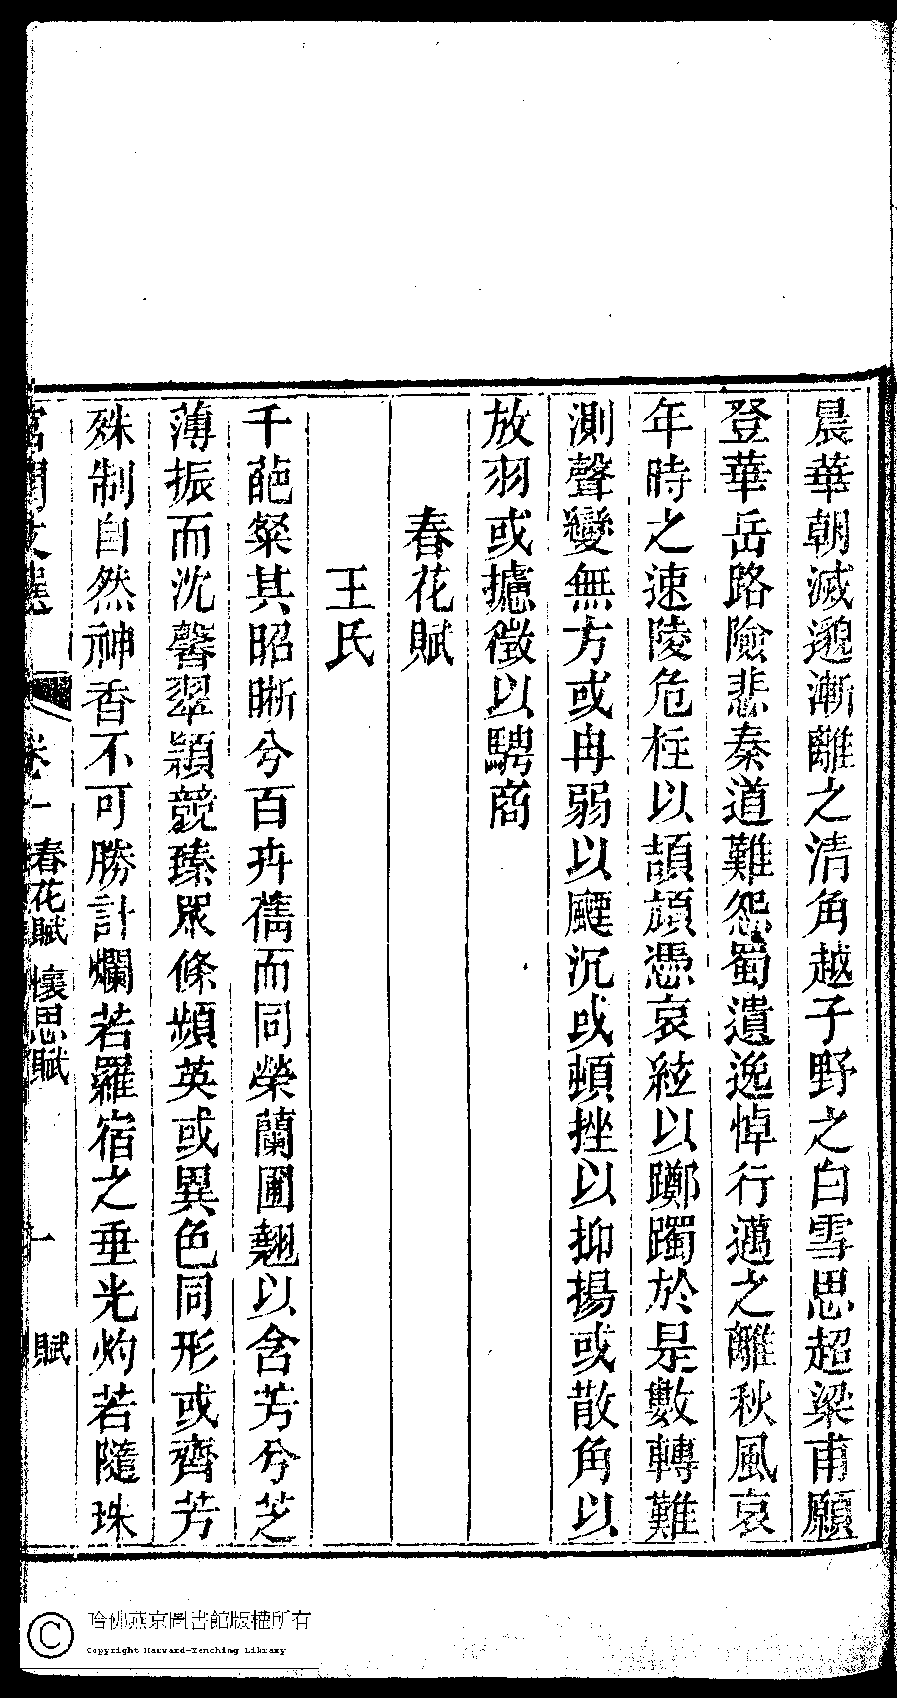 晨華朝滅邈漸離之清角越子野之白雪思超梁甫願
登華岳路險悲秦道難怨蜀遺逸悼行邁之離秋風哀
年時之速陵危柱以頡頏憑哀絃以躑躅於是數轉難
測聲變無方或冉弱以飃沉或頓挫以抑揚或散角以
放羽或攄徵以騁商
春花賦
王氏
千葩粲其昭晰兮百卉蒨而同榮蘭圃翹以含芳兮芝
薄振而沈馨翠穎競臻眾條頻英或異色同形或齊芳
殊制自然神香不可勝計爛若羅宿之垂光灼若隨珠
宮閨文選 卷一 春花賦 懷思賦 十 賦
哈佛燕京圖書館版權所有
Copyright Harvard-Yenching Library